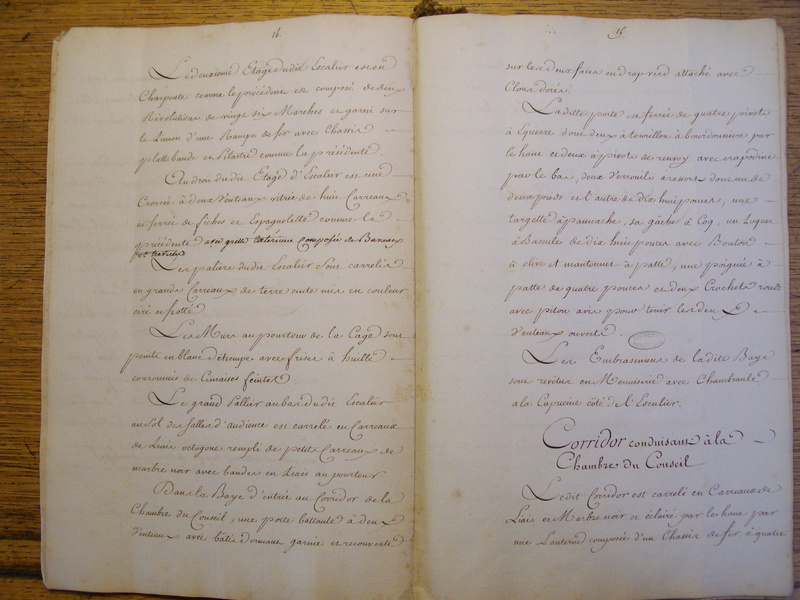 14.
Le deuxieme Etage dudit Escalier est en
Charpente comme le précédent est composé de deux
Révolutions de vingt six Marches et garni sur
le Limon d'une Rampe de fer avec Chassis
platte bande et Pilastre comme la précédente.
Au droit dudit Etage d'Escalier est une
Croisée à deux Venteaux vitrée de huit Carreaux
et ferrée de fiches et Espagnolette comme la
précédente avec grille Extérieure composée de Barreaux
et traverses
Les paliers dudit Escalier sont carrelés
en grands Carreaux de terre cuite mis en couleur
ciré et frotté
Les Murs au pourtour de la Cage sont
peints en blanc d'étrempe avec frises à huille
couronnés de Cimaises feintes.
Le grand Pallier au bas dudit Escalier
au Sol des Salles d'audience est carrelé en Carreaux
de Liais octogone rempli de petits Carreaux de
marbre noir avec bandes en Liais au pourtour
Dans la Baye d'entrée au Corridor de la
Chambre du Conseil, une porte battante à deux
Venteaux avec bâtis dormant garnie et recouverte
15.
sur les deux faces en drap verd attaché avec
Clous dorés.
Ladite porte est ferrée de quatre pivots
à Equerre dont deux à tourillon à bourdonniere par
le haut et deux à pivots de renvoy avec crapodine
par le bas, deux Verrouils à ressort dont un de
deux pieds et l'autre de dix huit pouces, une
targette à pannache, sa gâche à Coq, un Loquet
à Bascule de dix huit pouces avec Bouton
à olive et mantonnet à patte, une poignée à
patte de quatre pouces et deux Crochets ronds
avec piton à vis pour tenir les deux
Venteaux ouverts.
Les Embrasemens de ladite Baye
sont revêtus en Menuiserie avec Chambranle
à la Capucine côté de l'Escalier.
Corridor conduisant à la
Chambre du Conseil
Ledit Corridor est carrelé en Carreaux de
Liais et Marbre noir et éclairé par le haut par
une Lanterne composée d'un Chassis de fer à quatre